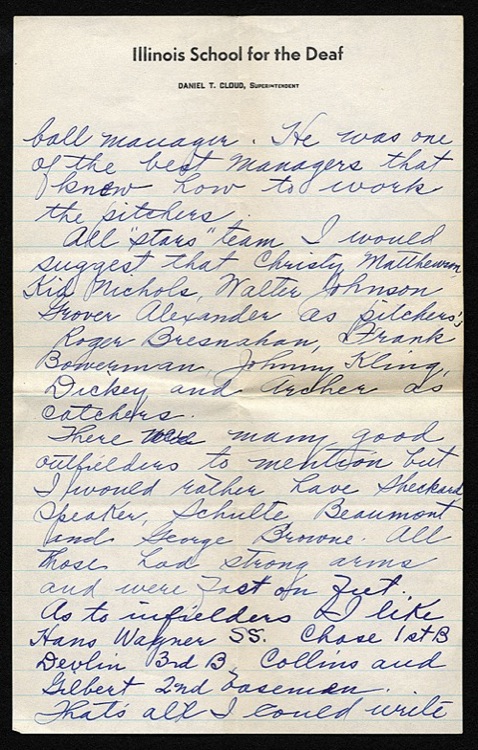 Illinois School for the Deaf
DANIEL T. CLOUD, SUPERINTENDENT
ball manager. He was one
of the best managers that
knew how to work
the pitchers.
All "stars" team I would
suggest that Christy Matthewson,
Kid Nichols, Walter Johnson
Grover Alexander as pitchers;
Roger Bresnahan, Frank
Bowerman, Johnny Kling,
Dickey and Archer as
catchers.
There were many good
outfielders to mention but
I would rather have Sheckard
Speaker, Schulte Beaumont
and George Browne. All
those had strong arms
and were fast on feet.
As to infielders I like
Hans Wagner SS. Chase 1st B
Devlin 3rd B, Collins and
Gilbert 2nd baseman.
That's all I could write